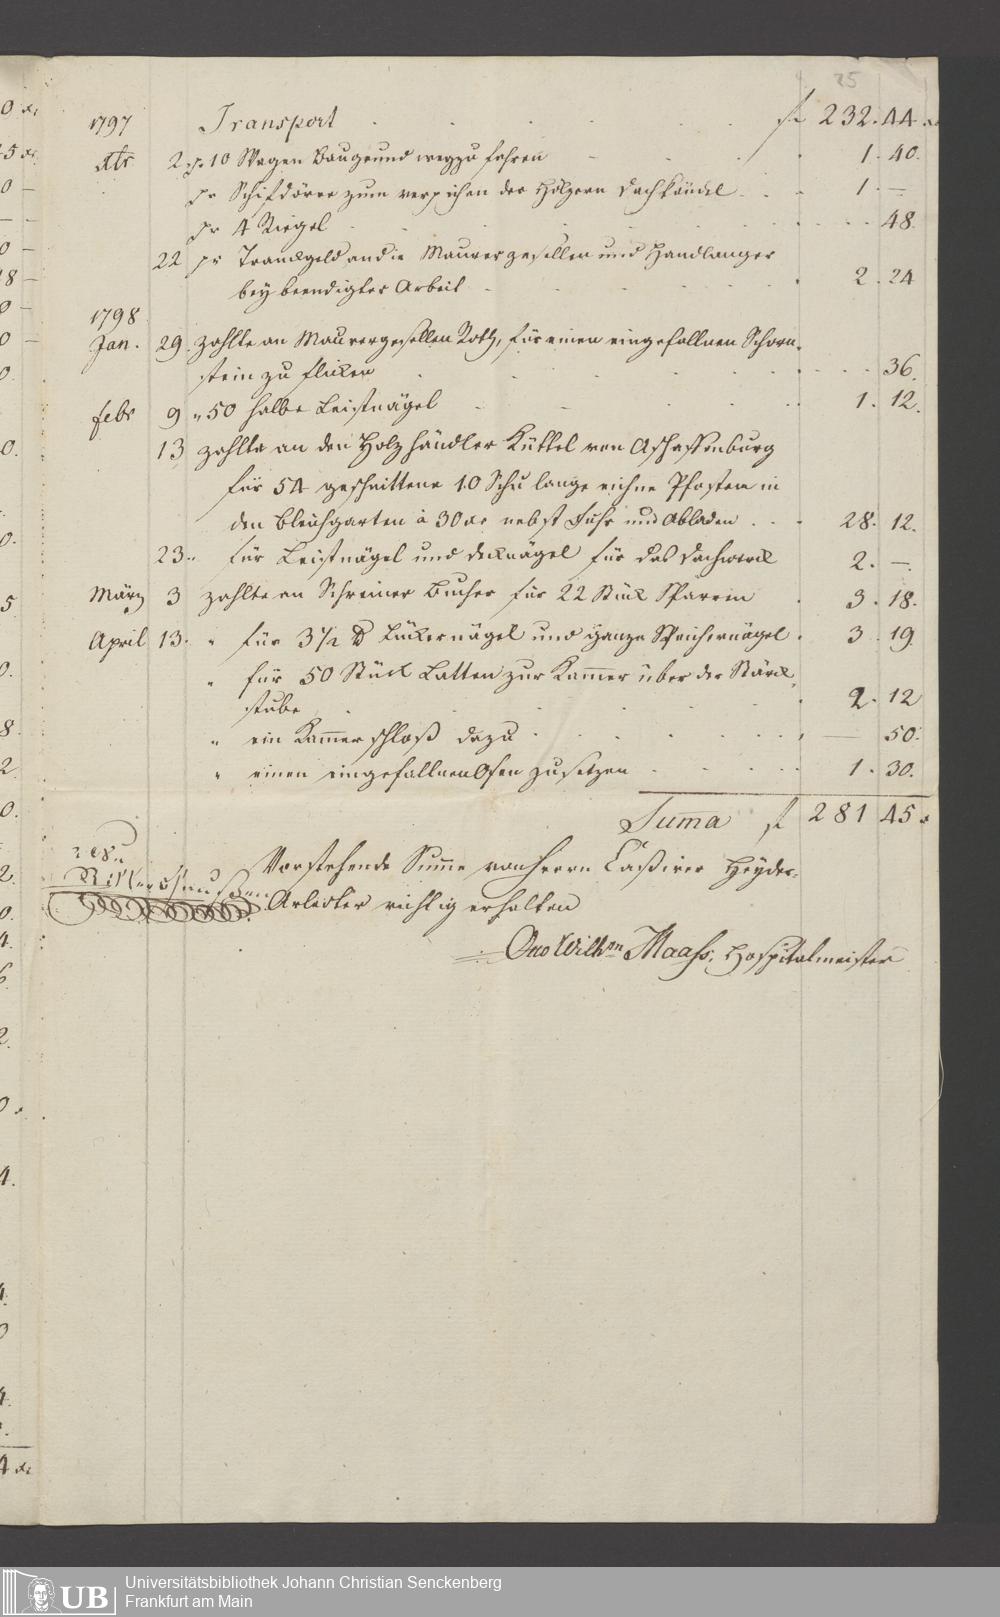 25
1797 Transport f 232. 44 xr
2 pr 10 Wagen Baugrund weg zu fahren 1. 40.
pr Schifdörre zum verpichen der Hölzern Dachkändel 1. —
pr 4 Riegel 48.
22 pr Tranckgeld an die Maurer gesellen und Handlanger
bey beendigter Arbeit 2. 24
1798
Jan. 29. zahlte an Maurergesellen Roth, für einen eingefallnen Schorn-
stein zu flicken 36.
febr 9 " 50 halbe Leistnägel 1. 12.
13 zahlte an den Holz händler Küttel von Aschaffenburg
für 54 geschnittene 10 Schu lange eichne Pfosten in
den Bleichgarten à 30 xr nebst Fuhr und Abladen 28. 12.
23. " für Leistnägel und decknägel für das Dachwerck 2. —
März 3 zahlte an Schreiner Bucher für 22 Stück Sparren 3. 18.
April 13. " für 3 1/2 ℔ Lückernägel und ganze Speichernägel 3. 19.
" für 50 Stück Latten zur Kam̄er über der Stärck-
stube 2. 12
" ein Kam̄er schloß dazu — 50.
" einen eingefallnen Ofen zu setzen 1. 30.
Sum̄a f 281 45 x
Vorstehende Sum̄e von Herrn Caßirer Heyder-
Arleder richtig erhalten
Otto Wilhm Maass, Hospitalmeister
UB Universitätsbibliothek Johann Christian Senckenberg
Frankfurt am Main